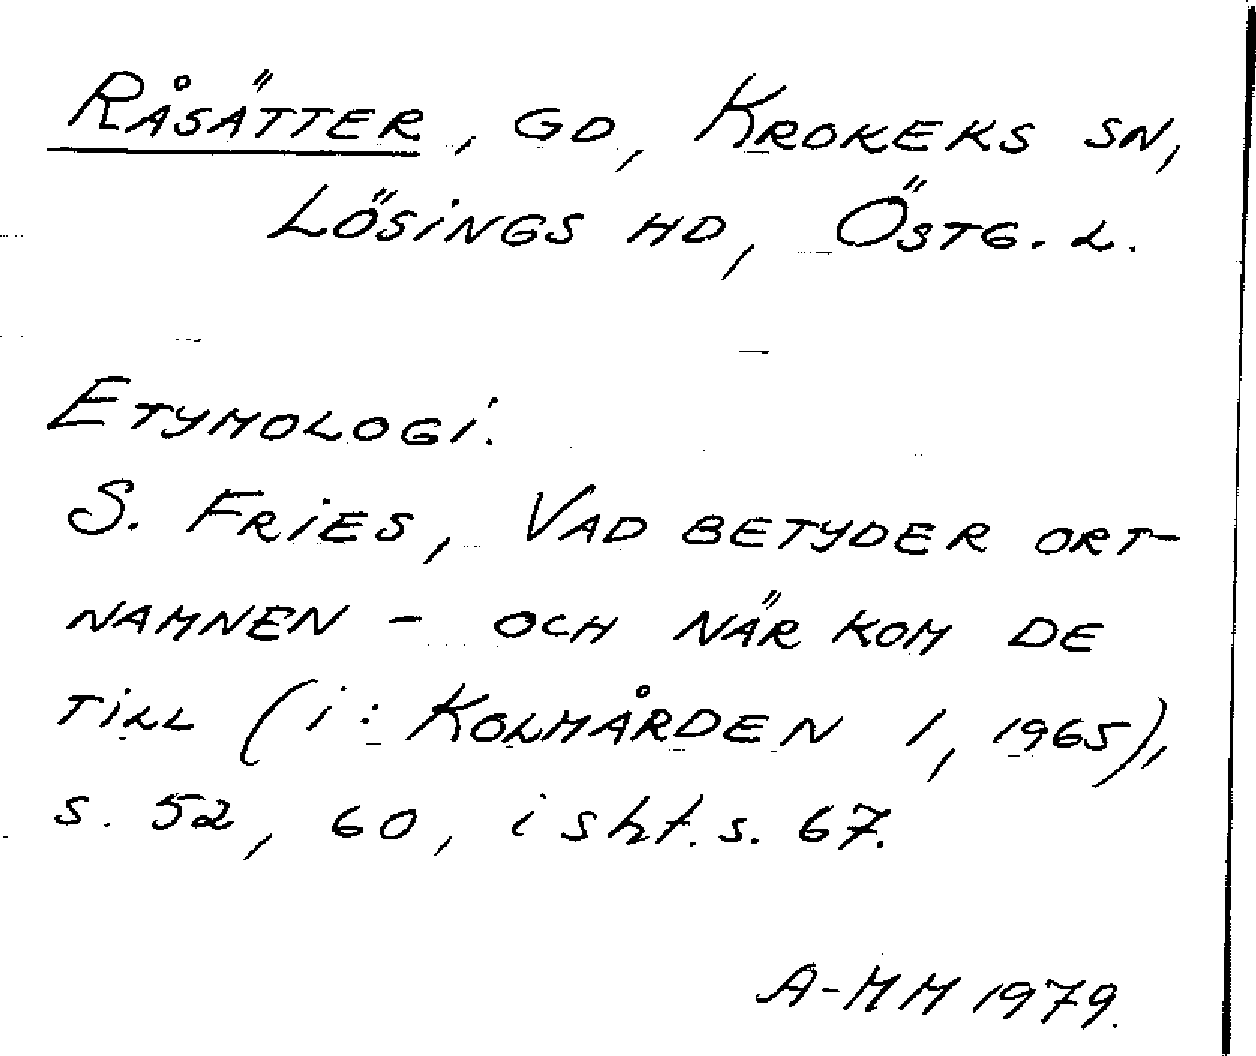 RÅSÄTTER, GD, KROKEKS SN,
LÖSINGS HD, ÖSTG. L.
ETYMOLOGI:
S. FRIES, VAD BETYDER ORT-
NAMNEN - OCH NÄR KOM DE
TILL (i: KOLMÅRDEN 1, 1965),
S. 52, 60, i sht. s. 67.
A-MM 1979.